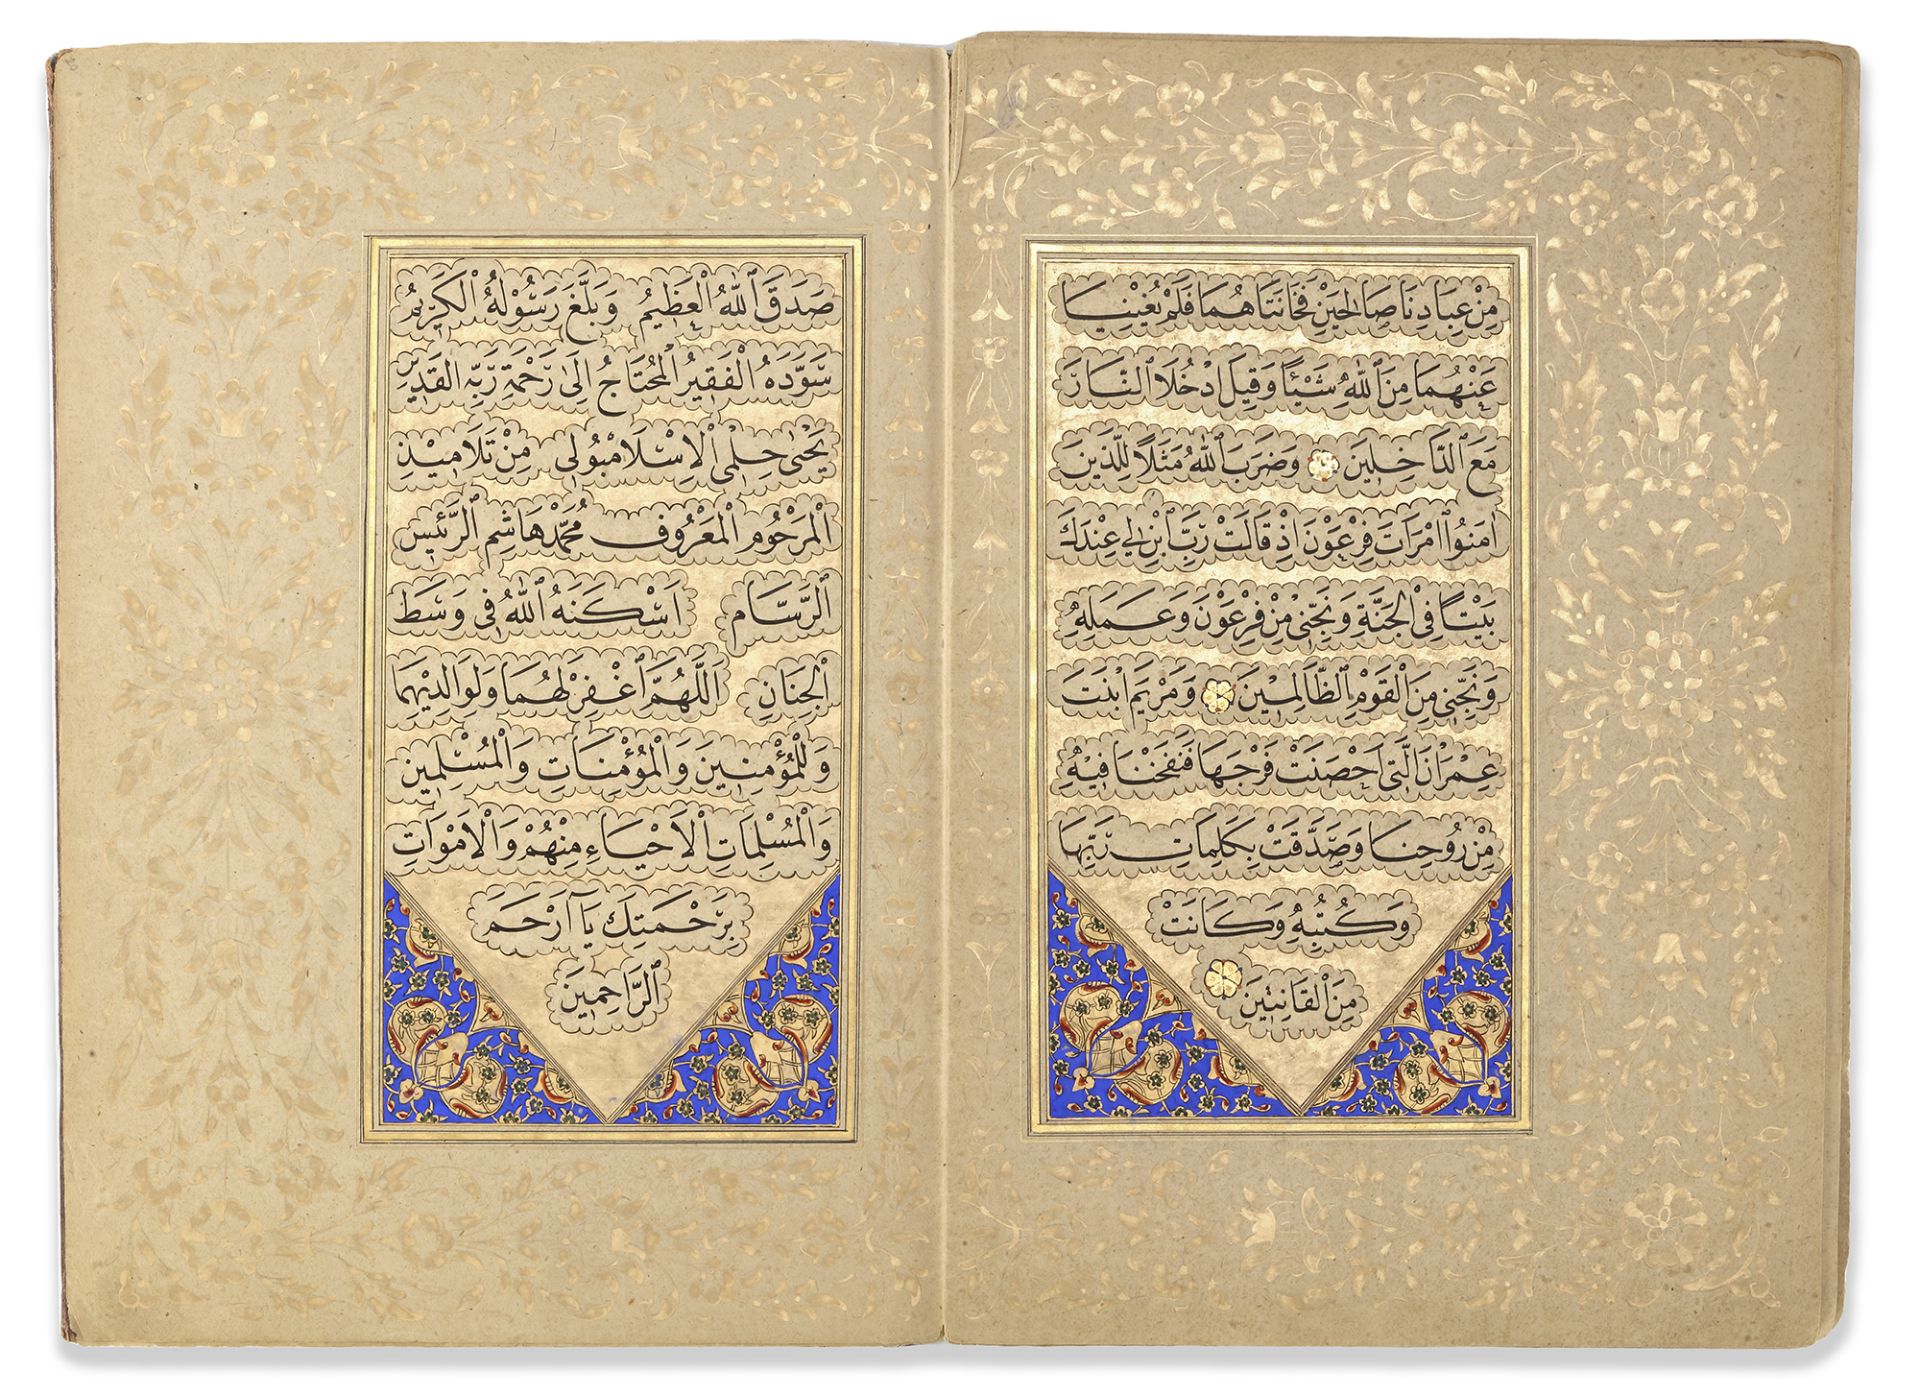 مِنْ عِبَادِنَا صَالِحَيْنِ فَخَانَتَاهُمَا فَلَمْ يُغْنِيَا
عَنْهُمَا مِنَ ٱللّٰهِ شَيْئًا وَقِيلَ ادْخُلَا ٱلنَّارَ
مَعَ ٱلدَّاخِلِينَ وَضَرَبَ ٱللّٰهُ مَثَلًا لِلَّذِينَ
اٰمَنُوا ٱمْرَاَتَ فِرْعَوْنَ اِذْ قَالَتْ رَبِّ ٱبْنِ لِي عِنْدَكَ
بَيْتًا فِي ٱلْجَنَّةِ وَنَجِّنِي مِنْ فِرْعَوْنَ وَعَمَلِهِ
وَنَجِّنِي مِنَ ٱلْقَوْمِ ٱلظَّالِمِينَ وَمَرْيَمَ ٱبْنَتَ
عِمْرَانَ ٱلَّتِي اَحْصَنَتْ فَرْجَهَا فَنَفَخْنَا فِيهِ
مِنْ رُوحِنَا وَصَدَّقَتْ بِكَلِمَاتِ رَبِّهَا
وَكُتُبِهِ وَكَانَتْ
مِنَ ٱلْقَانِتِينَ
صَدَقَ ٱللّٰهُ ٱلْعَظِيمُ وَبَلَّغَ رَسُولُهُ ٱلْكَرِيمُ
سَوَّدَهُ ٱلْفَقِيرُ ٱلْمُحْتَاجُ اِلَى رَحْمَةِ رَبِّهِ ٱلْقَدِيرِ
يَحْيٰى حِلْمِي ٱلْاِسْلَامْبُولِي مِنْ تَلَامِيذِ
ٱلْمَرْحُومِ ٱلْمَعْرُوفِ مُحَمَّدْ هَاشِمِ ٱلرَّئِيسِ
ٱلرَّسَّامِ اَسْكَنَهُ ٱللّٰهُ فِي وَسَطِ
ٱلْجِنَانِ اَللّٰهُمَّ ٱغْفِرْ لَهُمَا وَلِوَالِدِيهِمَا
وَلِلْمُؤْمِنِينَ وَٱلْمُؤْمِنَاتِ وَٱلْمُسْلِمِينَ
وَٱلْمُسْلِمَاتِ ٱلْاَحْيَاءِ مِنْهُمْ وَٱلْاَمْوَاتِ
بِرَحْمَتِكَ يَآ اَرْحَمَ
ٱلرَّاحِمِينَ